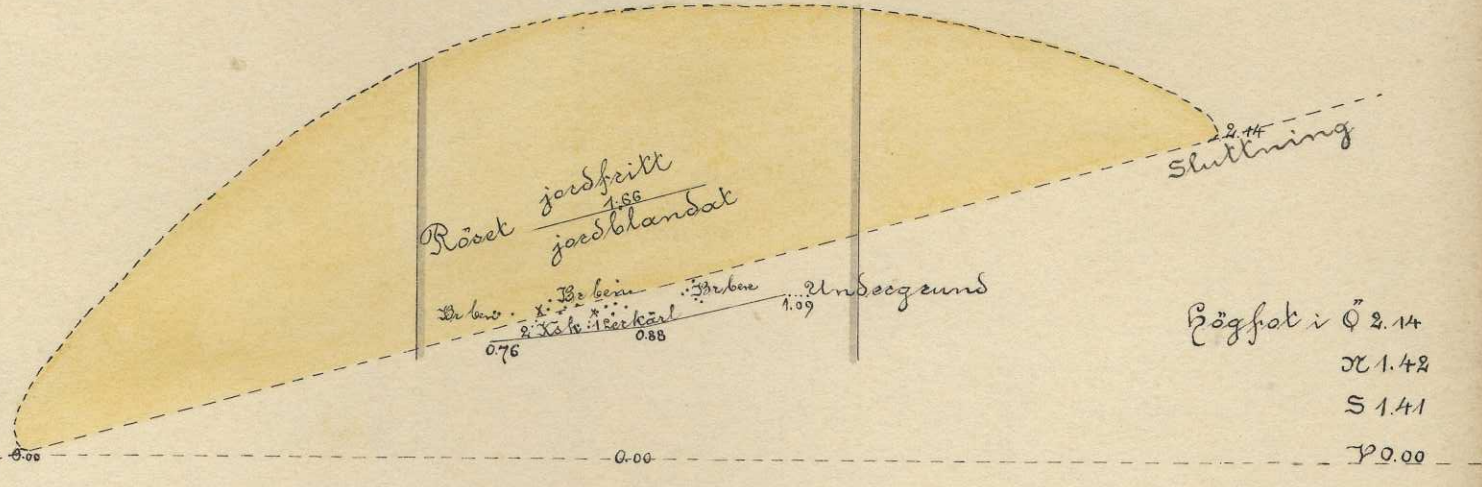 2.14
Sluttning
Röset jordfritt
1.66
jordblandat
Br ben Br ben Br ben Undergrund
2 Kok 1 Lerkärl
0.76 0.88 1.09
Högfot i Ö 2.14
N 1.42
S 1.41
V 0.00
0.00 0.00